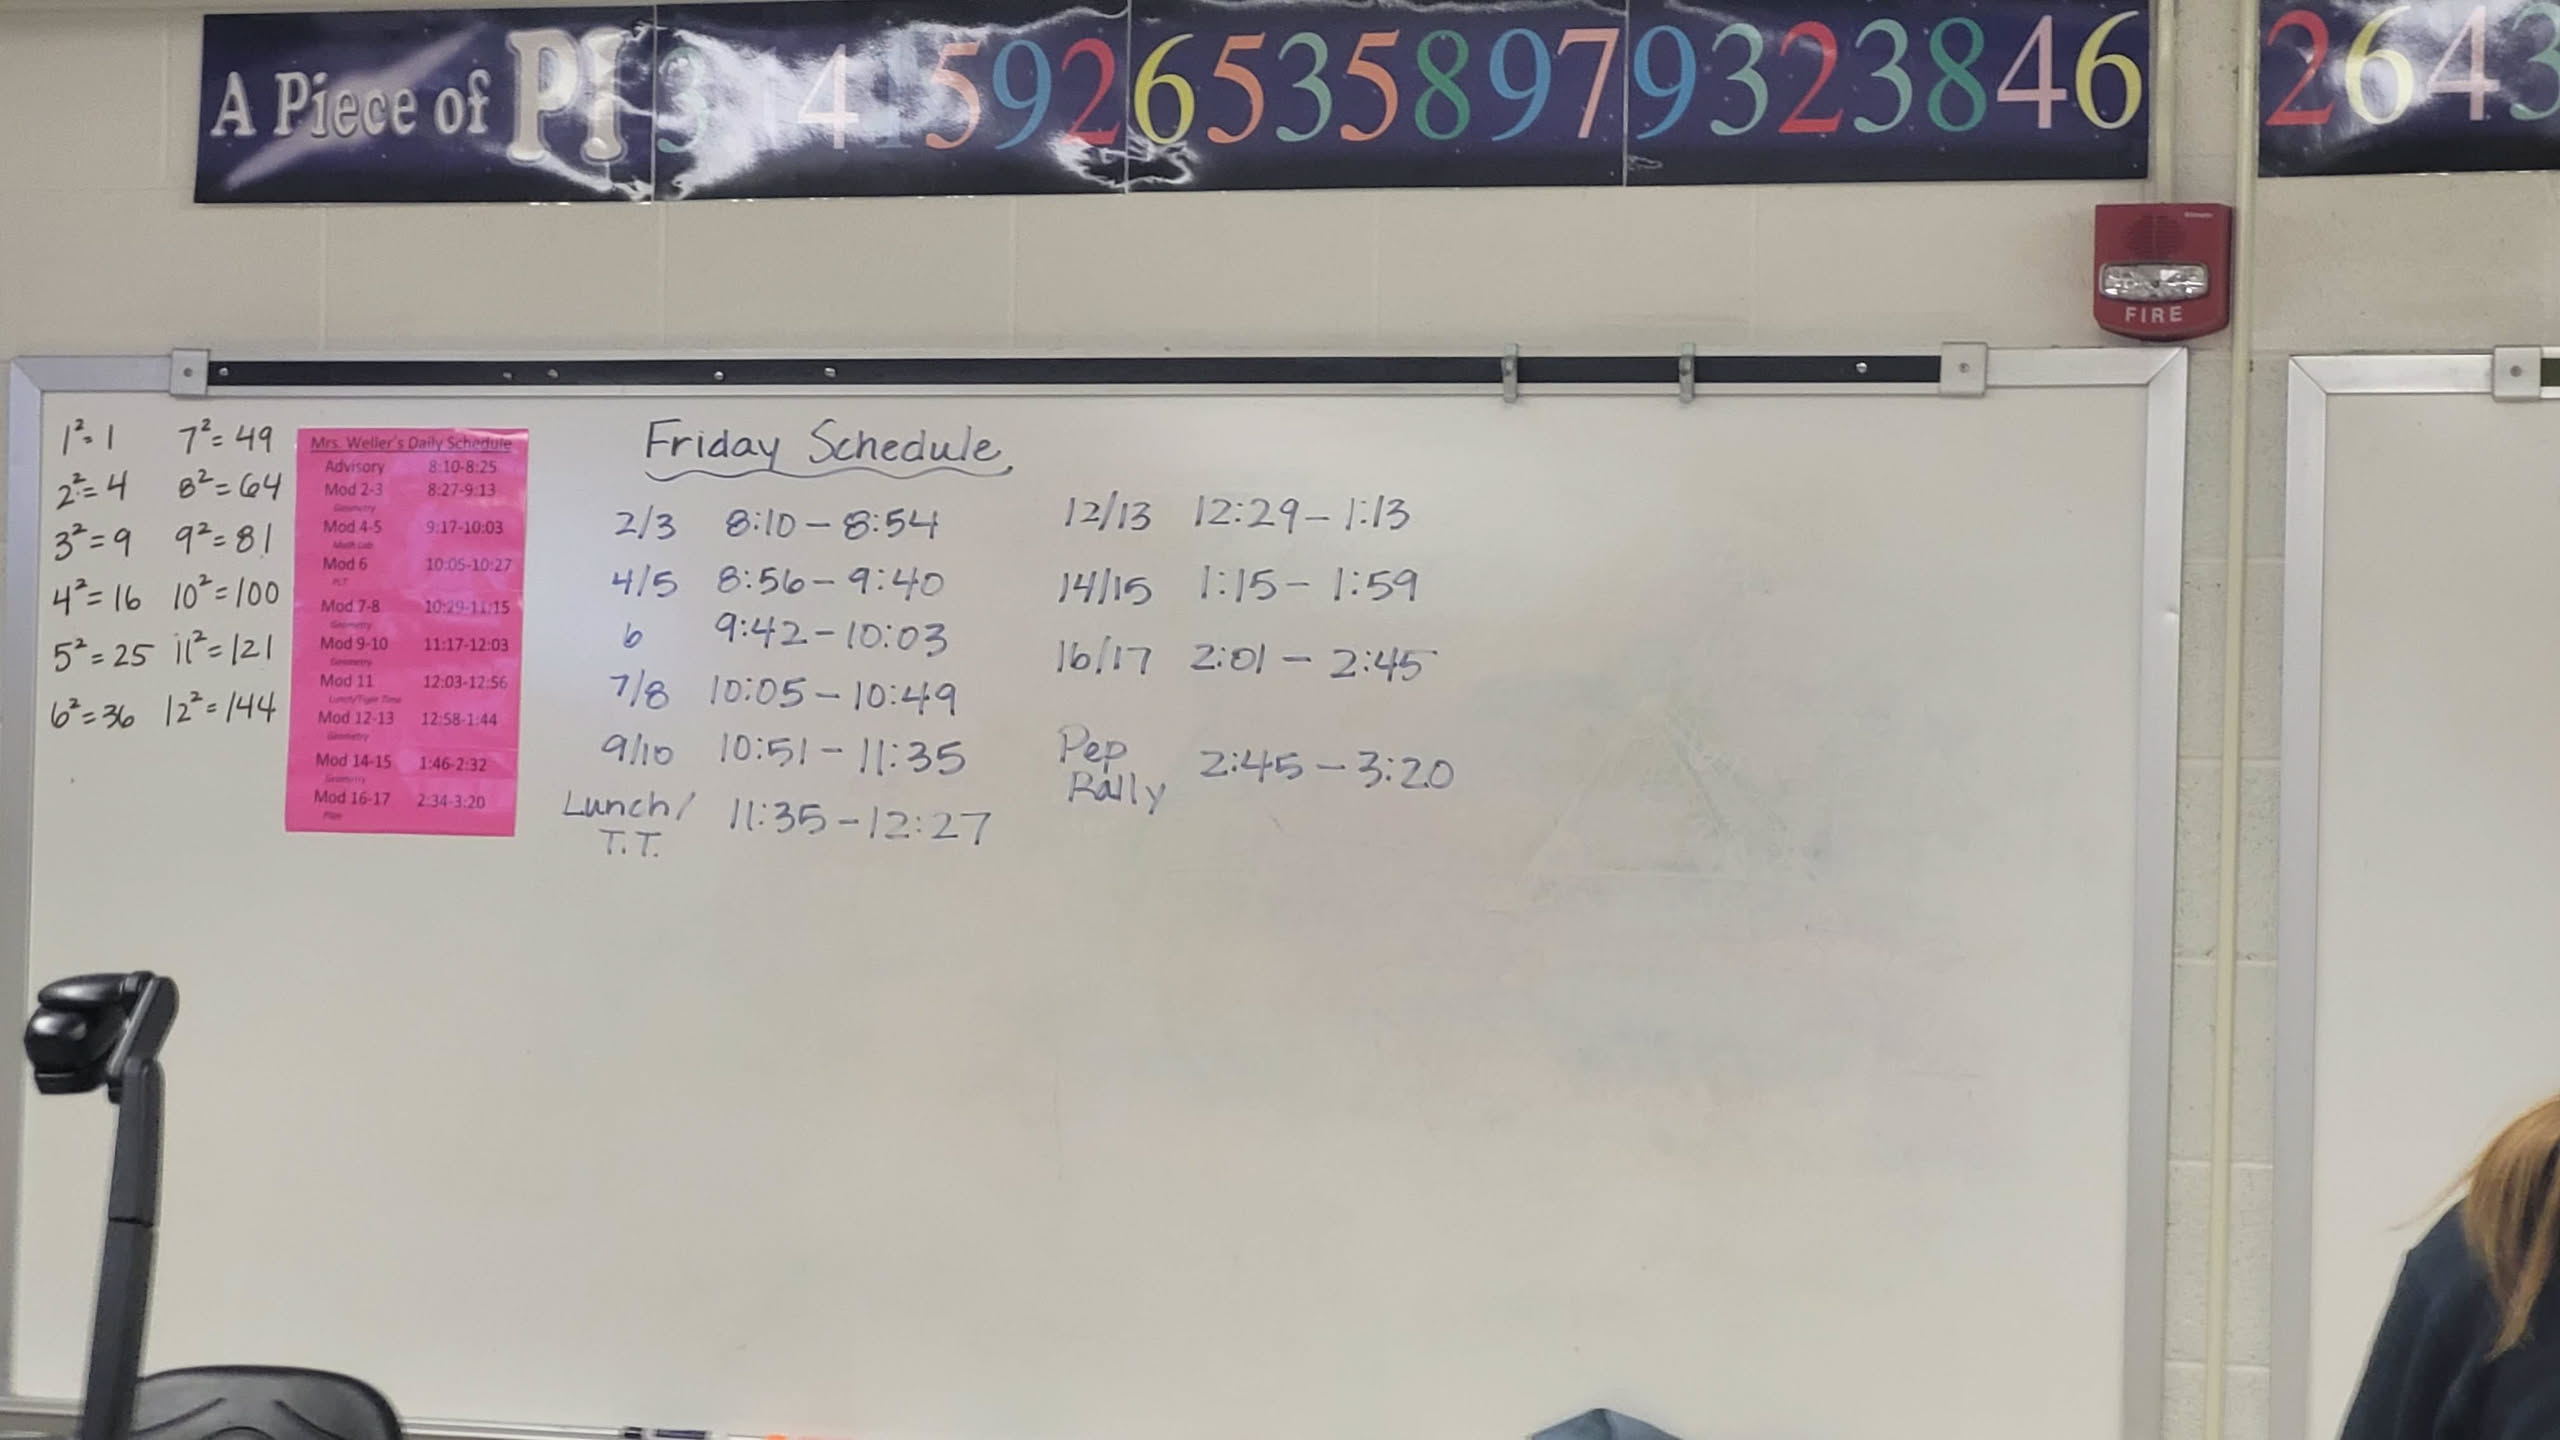 A Piece of PI 3.14159265358979323846
2643
FIRE
1² = 1 7² = 49
2² = 4 8² = 64
3² = 9 9² = 81
4² = 16 10² = 100
5² = 25 11² = 121
6² = 36 12² = 144
Mrs. Weller's Daily Schedule
Advisory 8:10-8:25
Mod 2-3 8:27-9:13
Geometry
Mod 4-5 9:17-10:03
Math Lab
Mod 6 10:05-10:27
PLT
Mod 7-8 10:29-11:15
Geometry
Mod 9-10 11:17-12:03
Geometry
Mod 11 12:03-12:56
Lunch/Tiger Time
Mod 12-13 12:58-1:44
Geometry
Mod 14-15 1:46-2:32
Geometry
Mod 16-17 2:34-3:20
Plan
Friday Schedule
2/3 8:10 – 8:54
4/5 8:56 – 9:40
6 9:42 – 10:03
7/8 10:05 – 10:49
9/10 10:51 – 11:35
Lunch/
T.T. 11:35 – 12:27
12/13 12:29 – 1:13
14/15 1:15 – 1:59
16/17 2:01 – 2:45
Pep
Rally 2:45 – 3:20